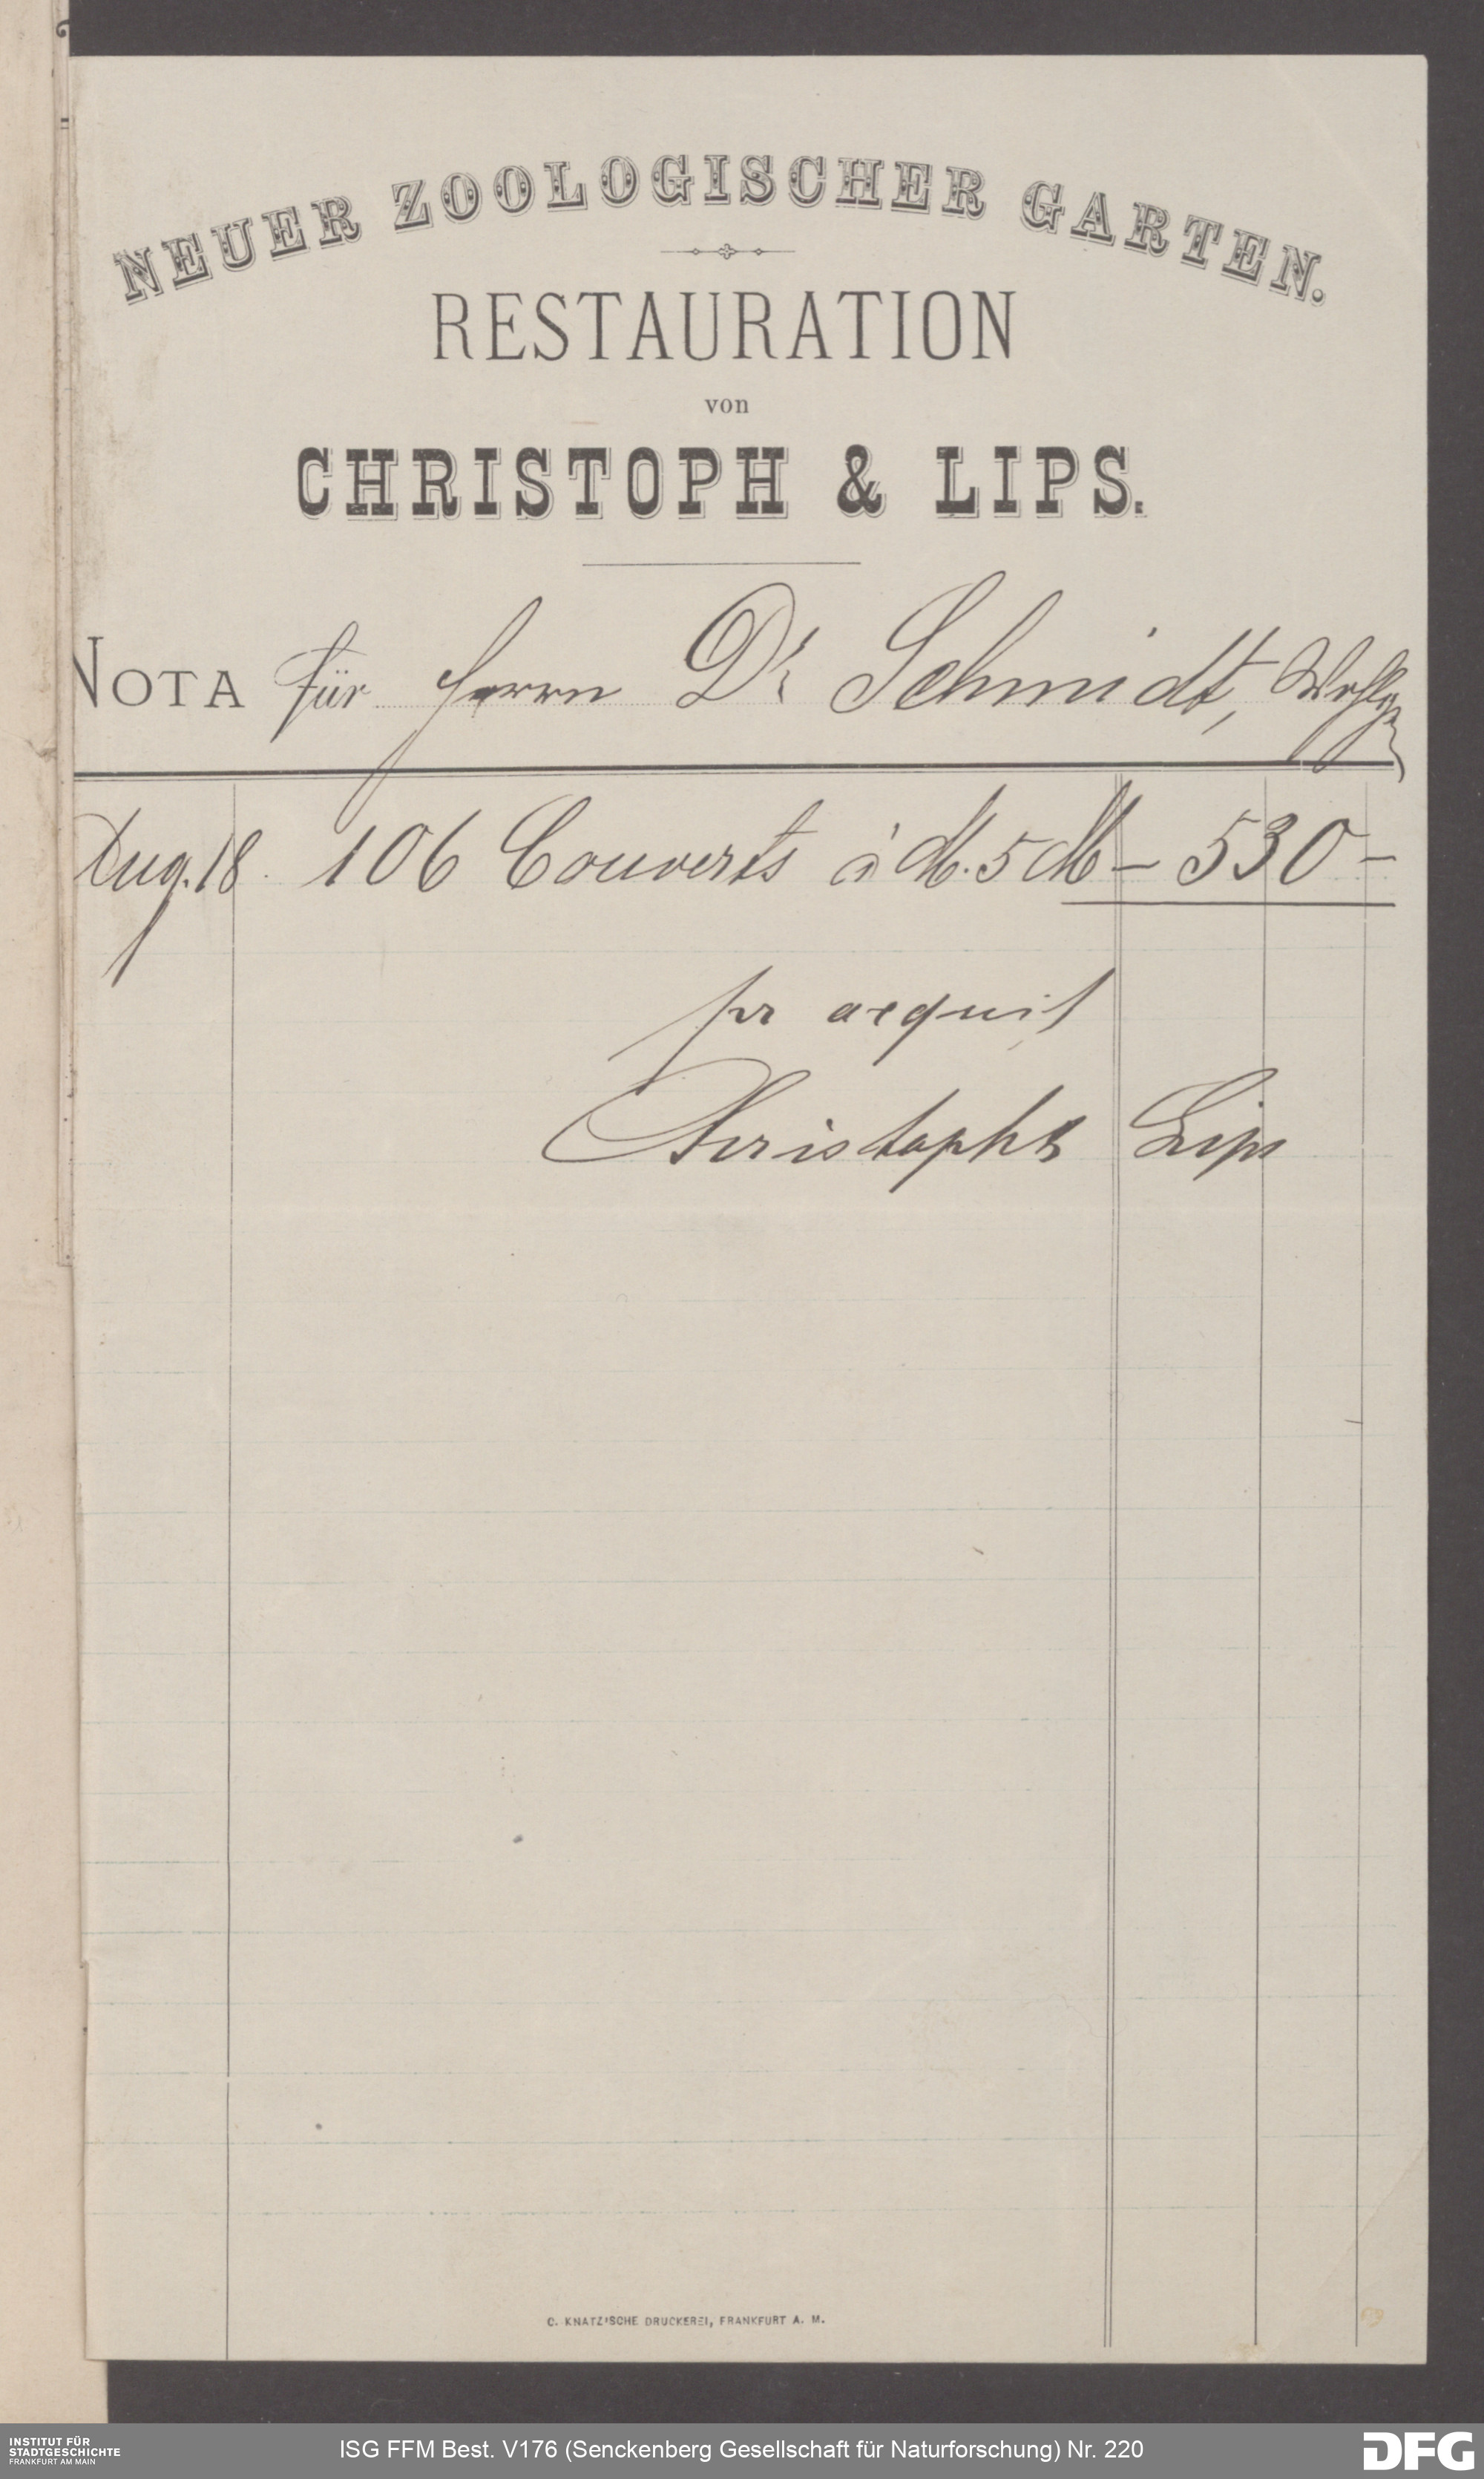 NEUER ZOOLOGISCHER GARTEN.
RESTAURATION
von
CHRISTOPH & LIPS.
NOTA für Herrn Dr Schmidt, Wohlg
Aug. 18. 106 Couverts à M. 5 M – 530 –
pr acquit
Christoph & Lips
C. KNATZ'SCHE DRUCKEREI, FRANKFURT A. M.
INSTITUT FÜR
STADTGESCHICHTE
FRANKFURT AM MAIN
ISG FFM Best. V176 (Senckenberg Gesellschaft für Naturforschung) Nr. 220
DFG